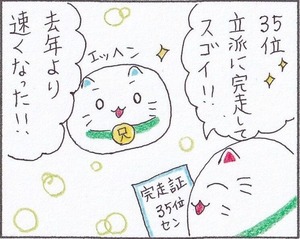 35位
立派に完走して
スゴイ!!
エッヘン
去年より
速くなった!!
兄
完走証
35位
セン